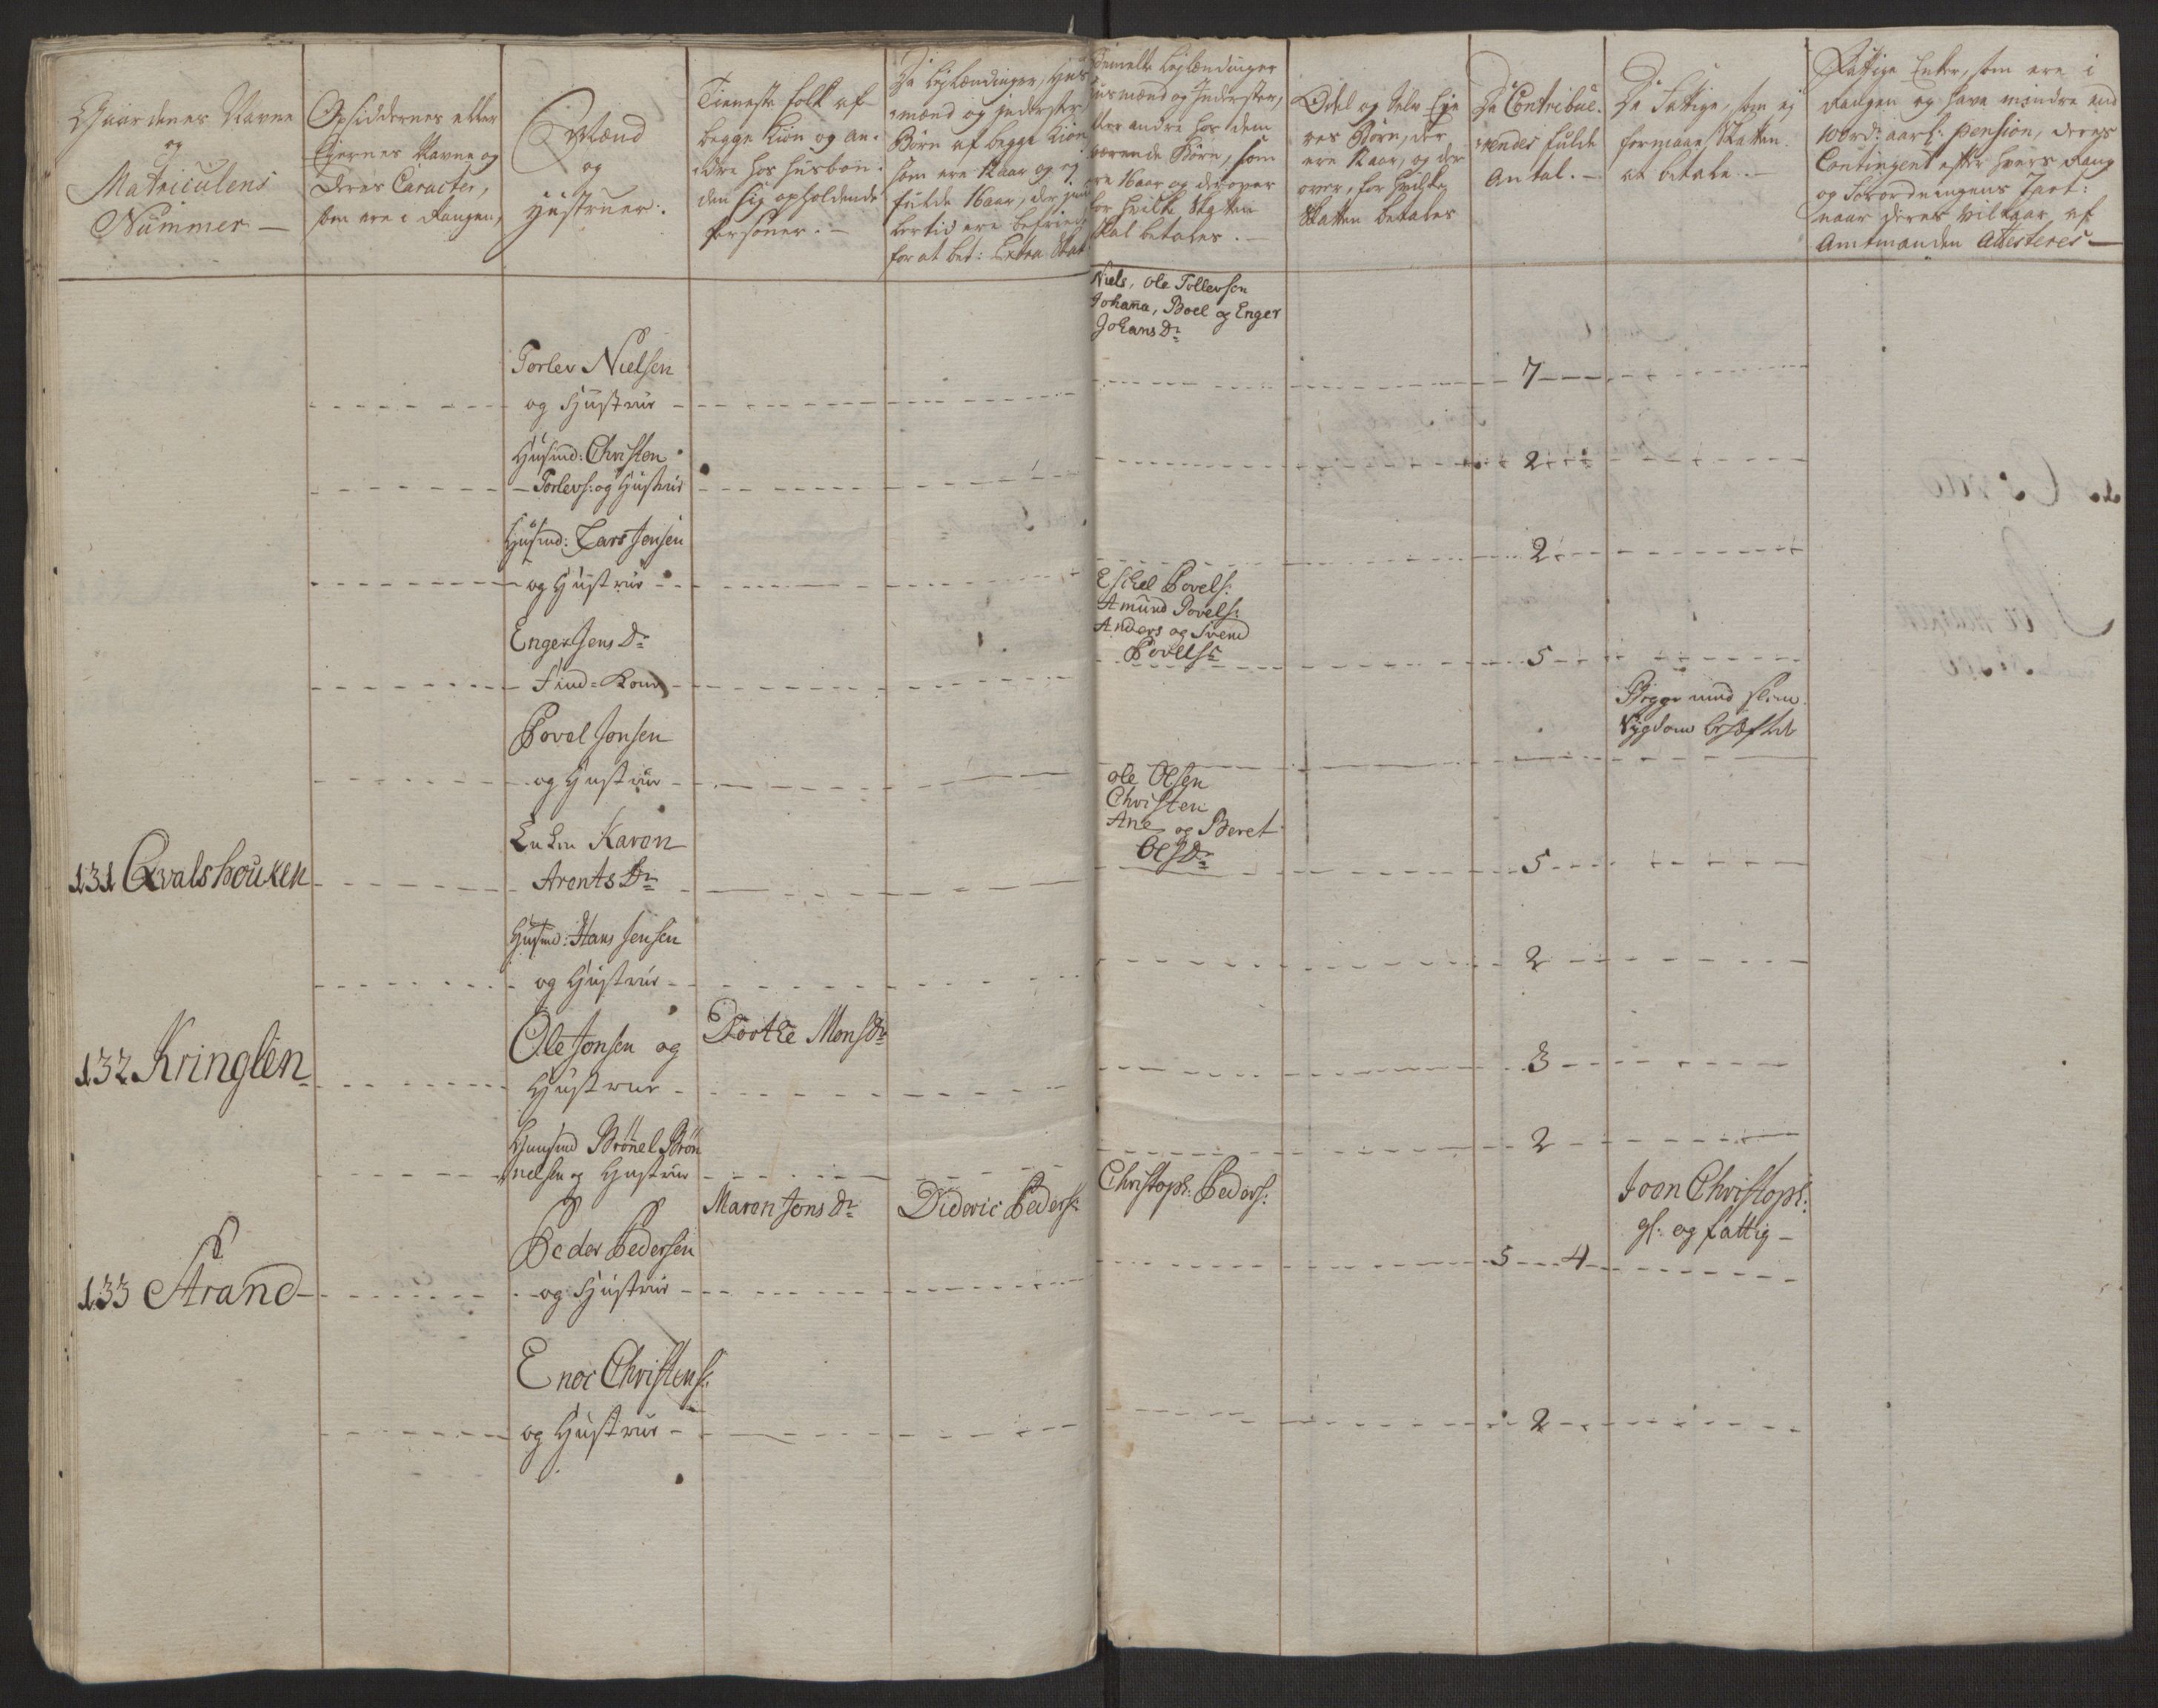 Gaardenes Navne
og
Matriculens
Nummer —
Opsiddernes eller
Eyernes Navne og
deres Caracter,
som ere i Rangen,
Mænd
og
Hustruer.
Tieneste folk af
begge Kiön og an-
dre hos husbon-
den sig opholdende
Personer. —
De Leylændinger, Hus
mænd og Inderster
Börn af begge Kiön
som ere 12 aar og ej
fulde 16 aar, der
lertid ere befriede
for at bet: Extra Skat
bemelte Leylændinger
Husmænd og Inderster,
eller andre hos dem
værende Börn, som
ere 16 aar og derover
for hvilke Skatten
skal betales. —
Odel og Selv Eye
res Börn, der
ere 12 aar, og der
over, for hvilke
Skatten betales
De Contribue-
rendes fulde
Antal. —
De Fattige, som ej
formaae Skatten
at betale. —
Fattige Enker, som ere i
Rangen og have mindre end
100 rdr aarl: Pension, deres
Contingent efter hvers Rang
og Forordningens Taxt:
naar deres Vilkaar af
Amtmanden Attesteres —
Niels, Ole Tollevsen
Johana, Boel og Enger
Johans Dr
Torlev Nielsen
og Hustrue
7
Husmd: Christen
Torlevs: og Hustrue
2
Husmd: Lars Jensen
og Hustrue
2
Enger Jens Dr
Eschel Povels:
Amund Povels:
Anders og Svend
Povels:
5
Povel Jonsen
og Hustrue
Begge med
Sygdom
131 Qvalshouken
Enken Karen
Arents Dr
Ole Olsen
Christen
Ane og Beret
Ols Dr
5
Husmd: Hans Jensen
og Hustrue
2
132 Kringlen
Ole Jonsen og
Hustrue
Dorthe Mons Dr
3
Huusmd Brönel Brön
nelsen og Hustrue
2
133 Strand
Peder Pedersen
og Hustrue
Maren Jons Dr
Dideric Peders:
Christoph: Peders:
5 4
Joen Christoph:
gl: og fattig —
Enoc Christens:
og Hustrue
2